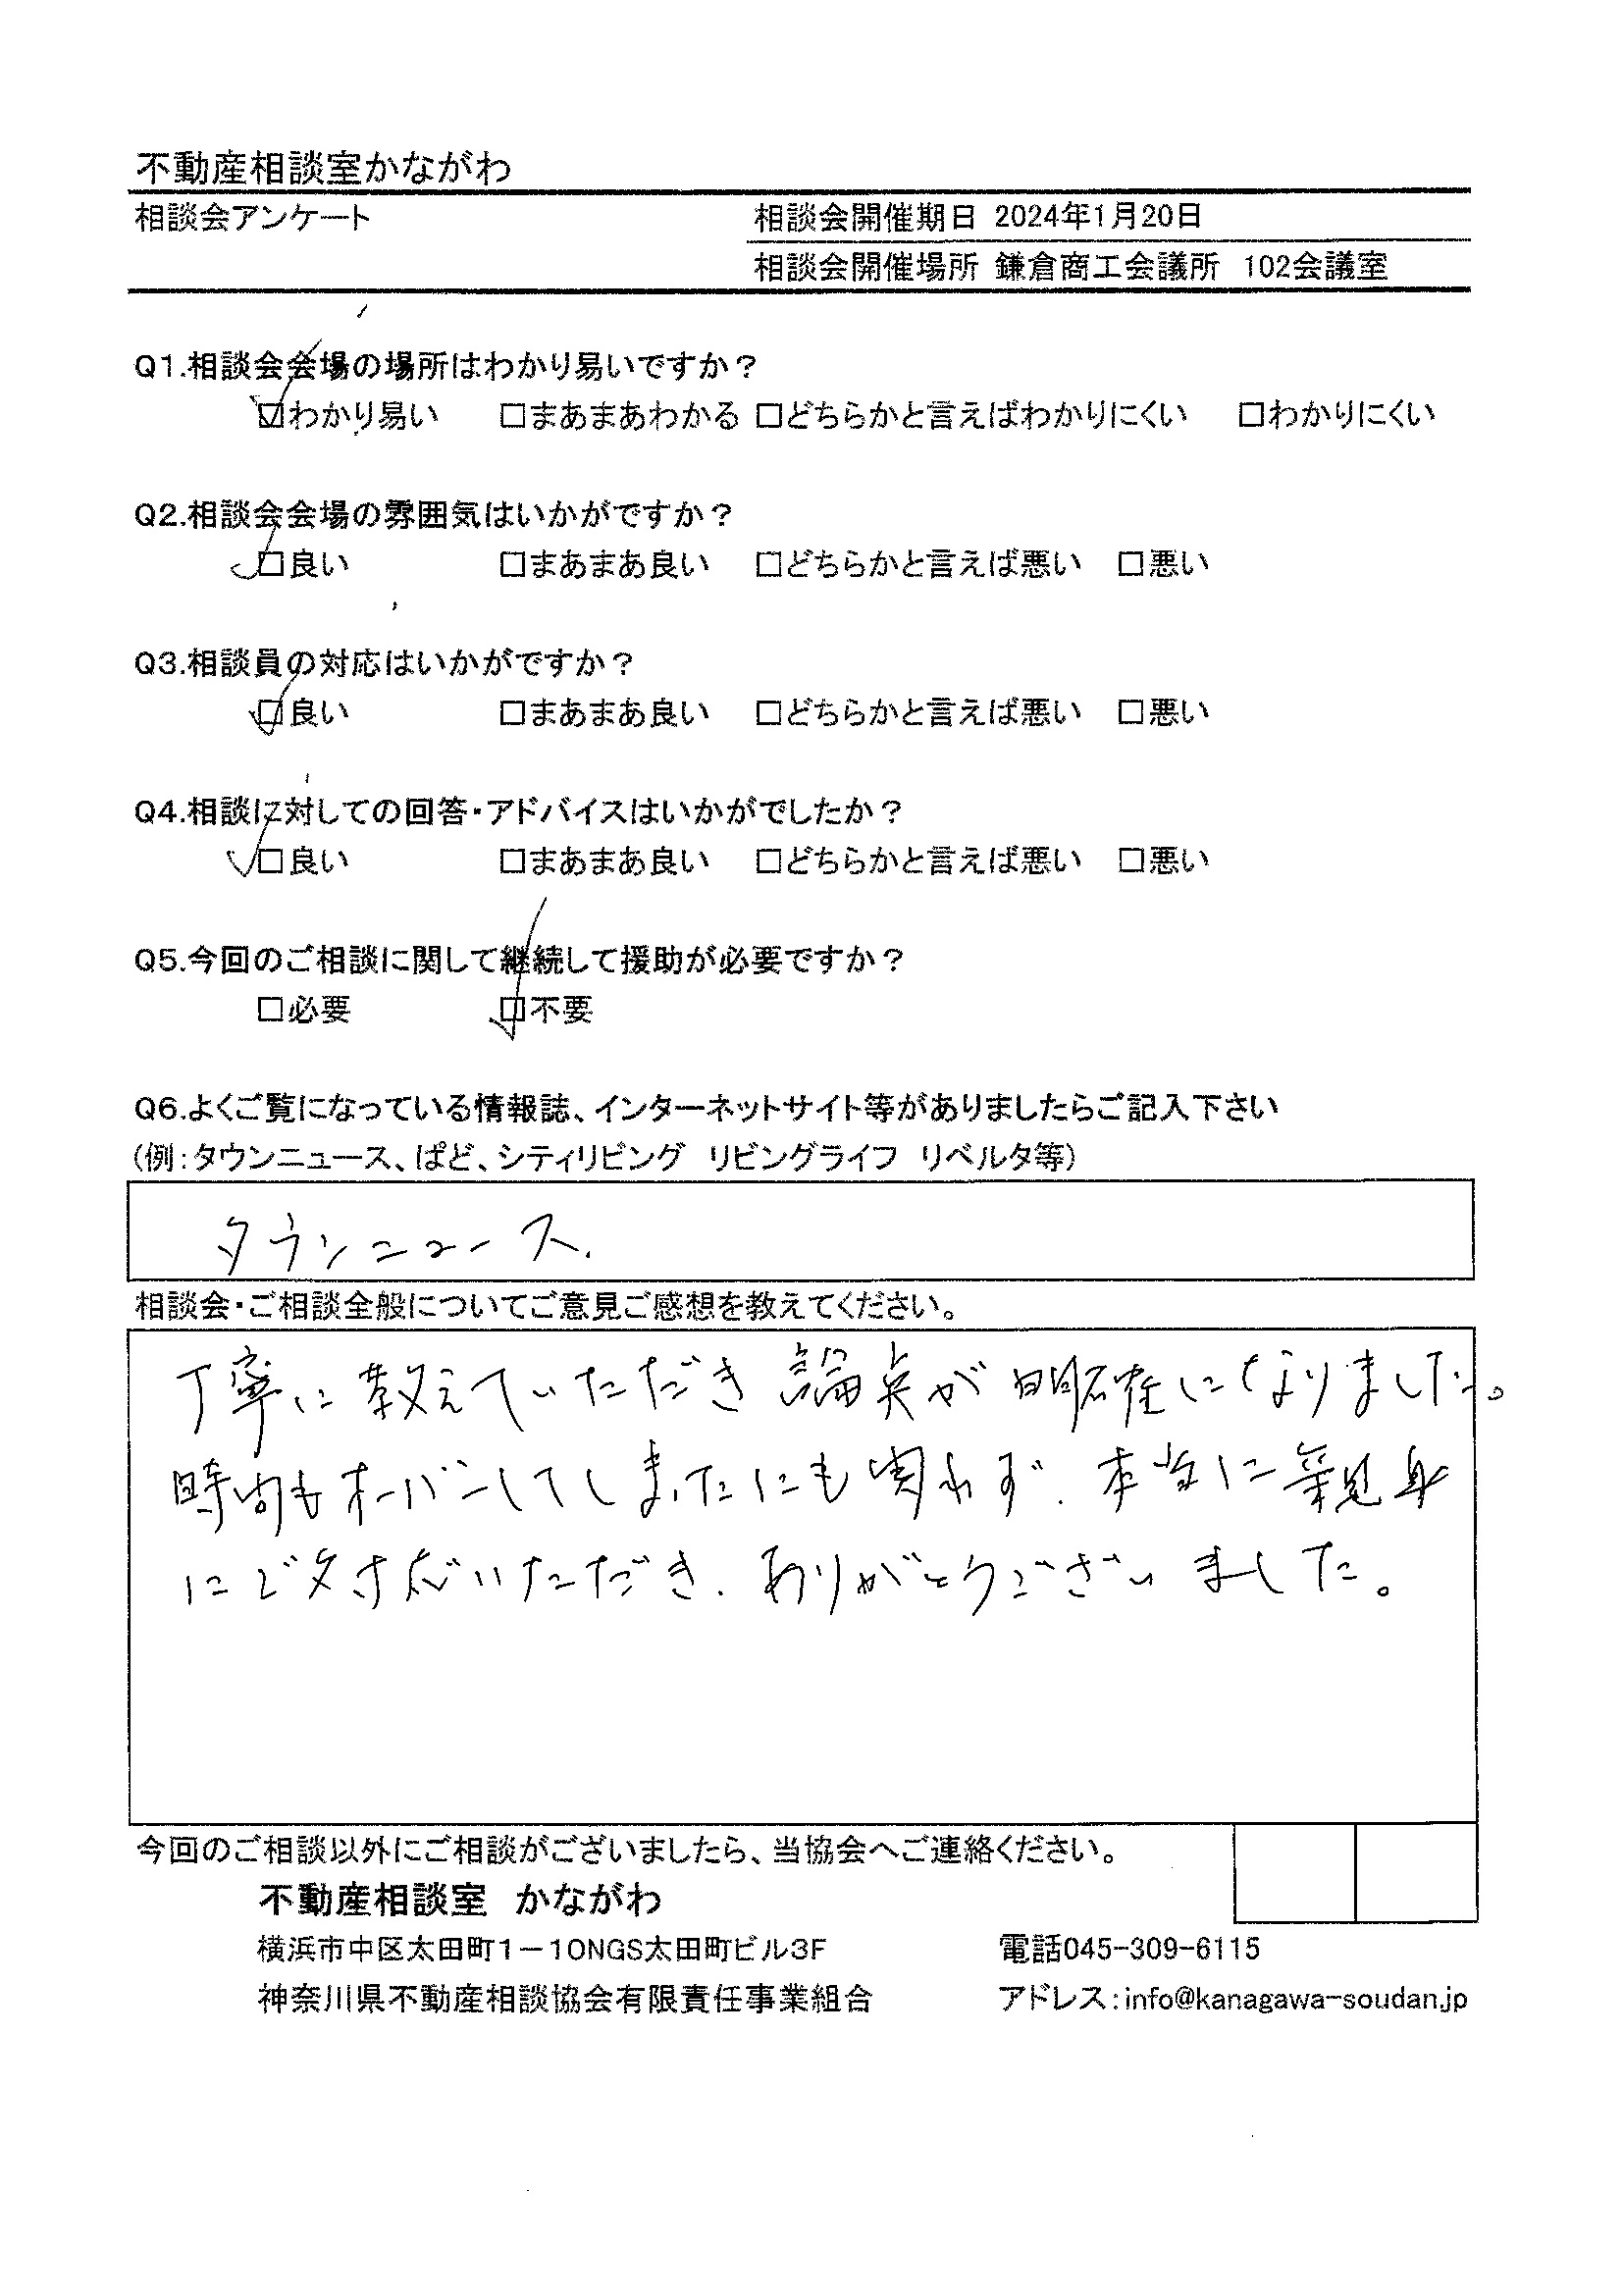 不動産相談室かながわ
相談会アンケート
相談会開催期日 2024年1月20日
相談会開催場所 鎌倉商工会議所 102会議室
Q1.相談会会場の場所はわかり易いですか？
☑わかり易い □まあまあわかる □どちらかと言えばわかりにくい □わかりにくい
Q2.相談会会場の雰囲気はいかがですか？
☑良い □まあまあ良い □どちらかと言えば悪い □悪い
Q3.相談員の対応はいかがですか？
☑良い □まあまあ良い □どちらかと言えば悪い □悪い
Q4.相談に対しての回答・アドバイスはいかがでしたか？
☑良い □まあまあ良い □どちらかと言えば悪い □悪い
Q5.今回のご相談に関して継続して援助が必要ですか？
□必要 ☑不要
Q6.よくご覧になっている情報誌、インターネットサイト等がありましたらご記入下さい
(例：タウンニュース、ぱど、シティリビング リビングライフ リベルタ等)
タウンニュース.
相談会・ご相談全般についてご意見ご感想を教えてください。
丁寧に教えていただき論点が明確になりました。
時間もオーバーしてしまったにも関わらず、本当に親身
にご対応いただき、ありがとうございました。
今回のご相談以外にご相談がございましたら、当協会へご連絡ください。
不動産相談室 かながわ
横浜市中区太田町1－10NGS太田町ビル3F 電話045-309-6115
神奈川県不動産相談協会有限責任事業組合 アドレス：info@kanagawa-soudan.jp